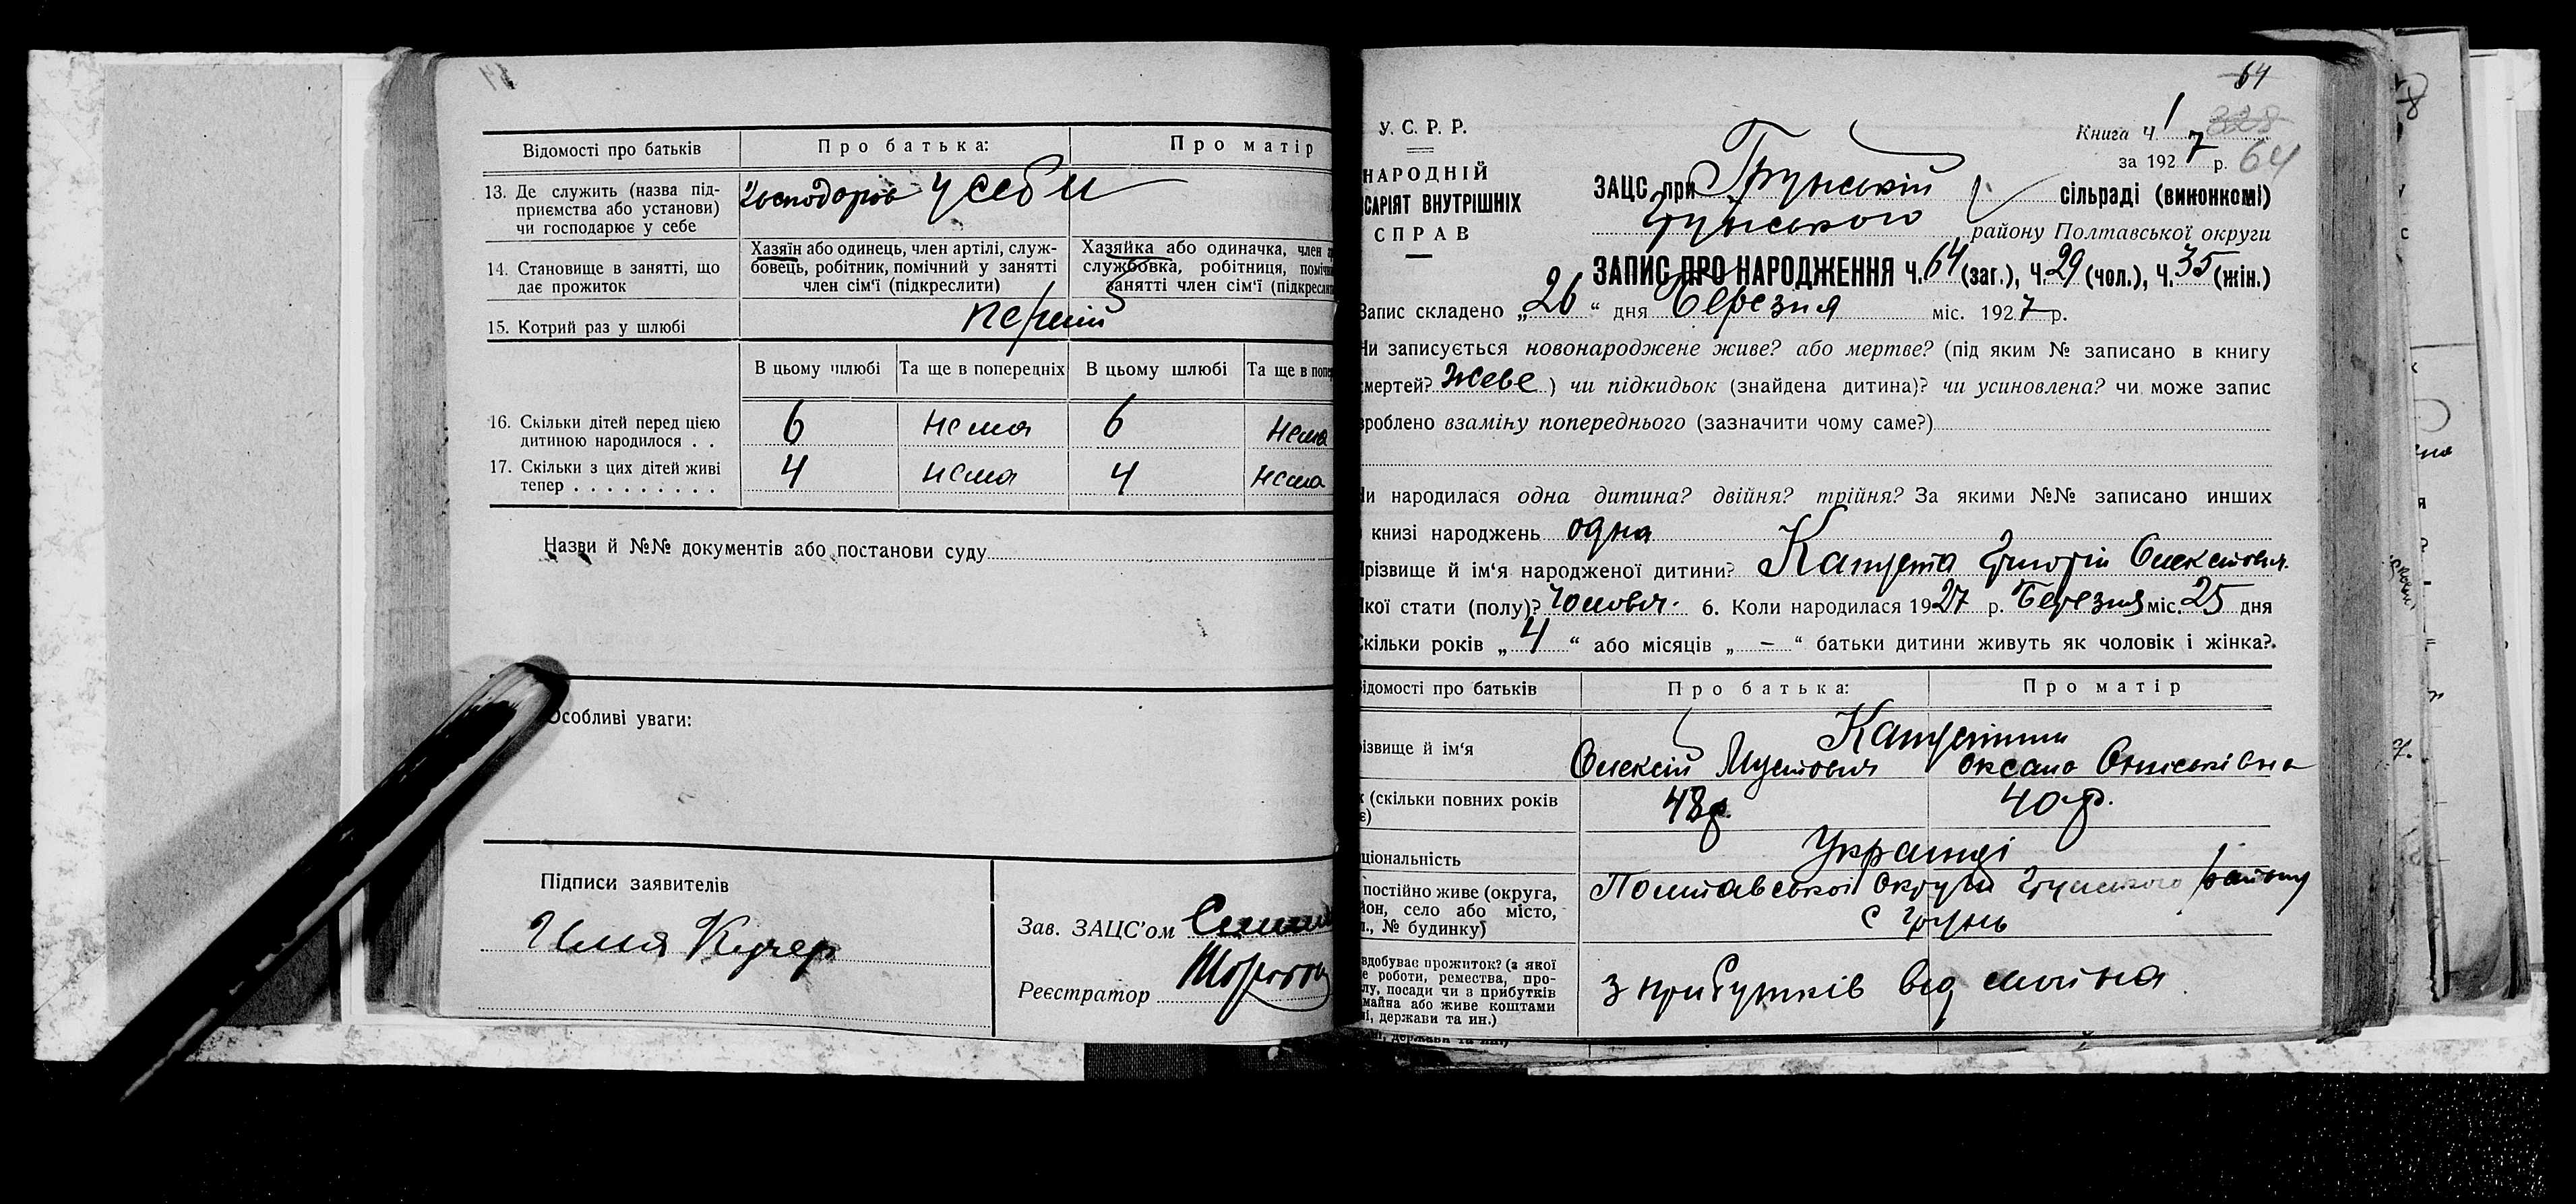 Відомості про батьків
Про батька:
Про матір
13. Де служить (назва під-
приємства або установи)
чи господарює у себе
Господорює у себе
14. Становище в занятті, що
дає прожиток
Хазяїн або одинець, член артілі, служ-
бовець, робітник, помічний у занятті
член сім'ї (підкреслити)
Хазяйка або одиначка, член
службовка, робітниця,
занятті член сім'ї
15. Котрий раз у шлюбі
перший
В цьому шлюбі
Та ще в попередніх
В цьому шлюбі
Та ще в
16. Скільки дітей перед цією
дитиною народилося . .
6 нема 6 нема
17. Скільки з цих дітей живі
тепер . . . . . . . . .
4 нема 4 нема
Назви й №№ документів або постанови суду
Особливі уваги:
Підписи заявителів
Кучер
Зав. ЗАЦС'ом
Реєстратор
64
У. С. Р. Р.
НАРОДНІЙ
ВНУТРІШНІХ
СПРАВ
Книга Ч. 1 328
за 1927 р. 64
ЗАЦС при Грунській сільраді (виконкомі)
Грунського району Полтавської округи
ЗАПИС ПРО НАРОДЖЕННЯ Ч. 64 (заг.), Ч. 29 (чол.), Ч. 35 (жін.)
Запис складено „26“ дня Березня міс. 1927 р.
Чи записується новонароджене живе? або мертве? (під яким № записано в книгу
смертей? живе) чи підкидьок (знайдена дитина)? чи усиновлена? чи може запис
зроблено взаміну попереднього (зазначити чому саме?)
Чи народилася одна дитина? двійня? трійня? За якими №№ записано инших
книзі народжень одна
Прізвище й ім'я народженої дитини? Капуста Григорій Олексієвич
якої стати (полу)? чоловіч. 6. Коли народилася 1927 р. Березня міс. 25 дня
Скільки років „4“ або місяців „–“ батьки дитини живуть як чоловік і жінка?
Відомості про батьків
Про батька:
Про матір
ім'я
Олексій
Оксана
(скільки повних років
48 р.
40 р.
Українці
постійно живе (округа,
село або місто,
№ будинку)
Полтавської округи Грунського району
с Грунь
здобуває прожиток? (з якої
роботи, ремества, про-
посади чи з прибутків
майна або живе коштами
держави та ин.)
з прибутків від майна